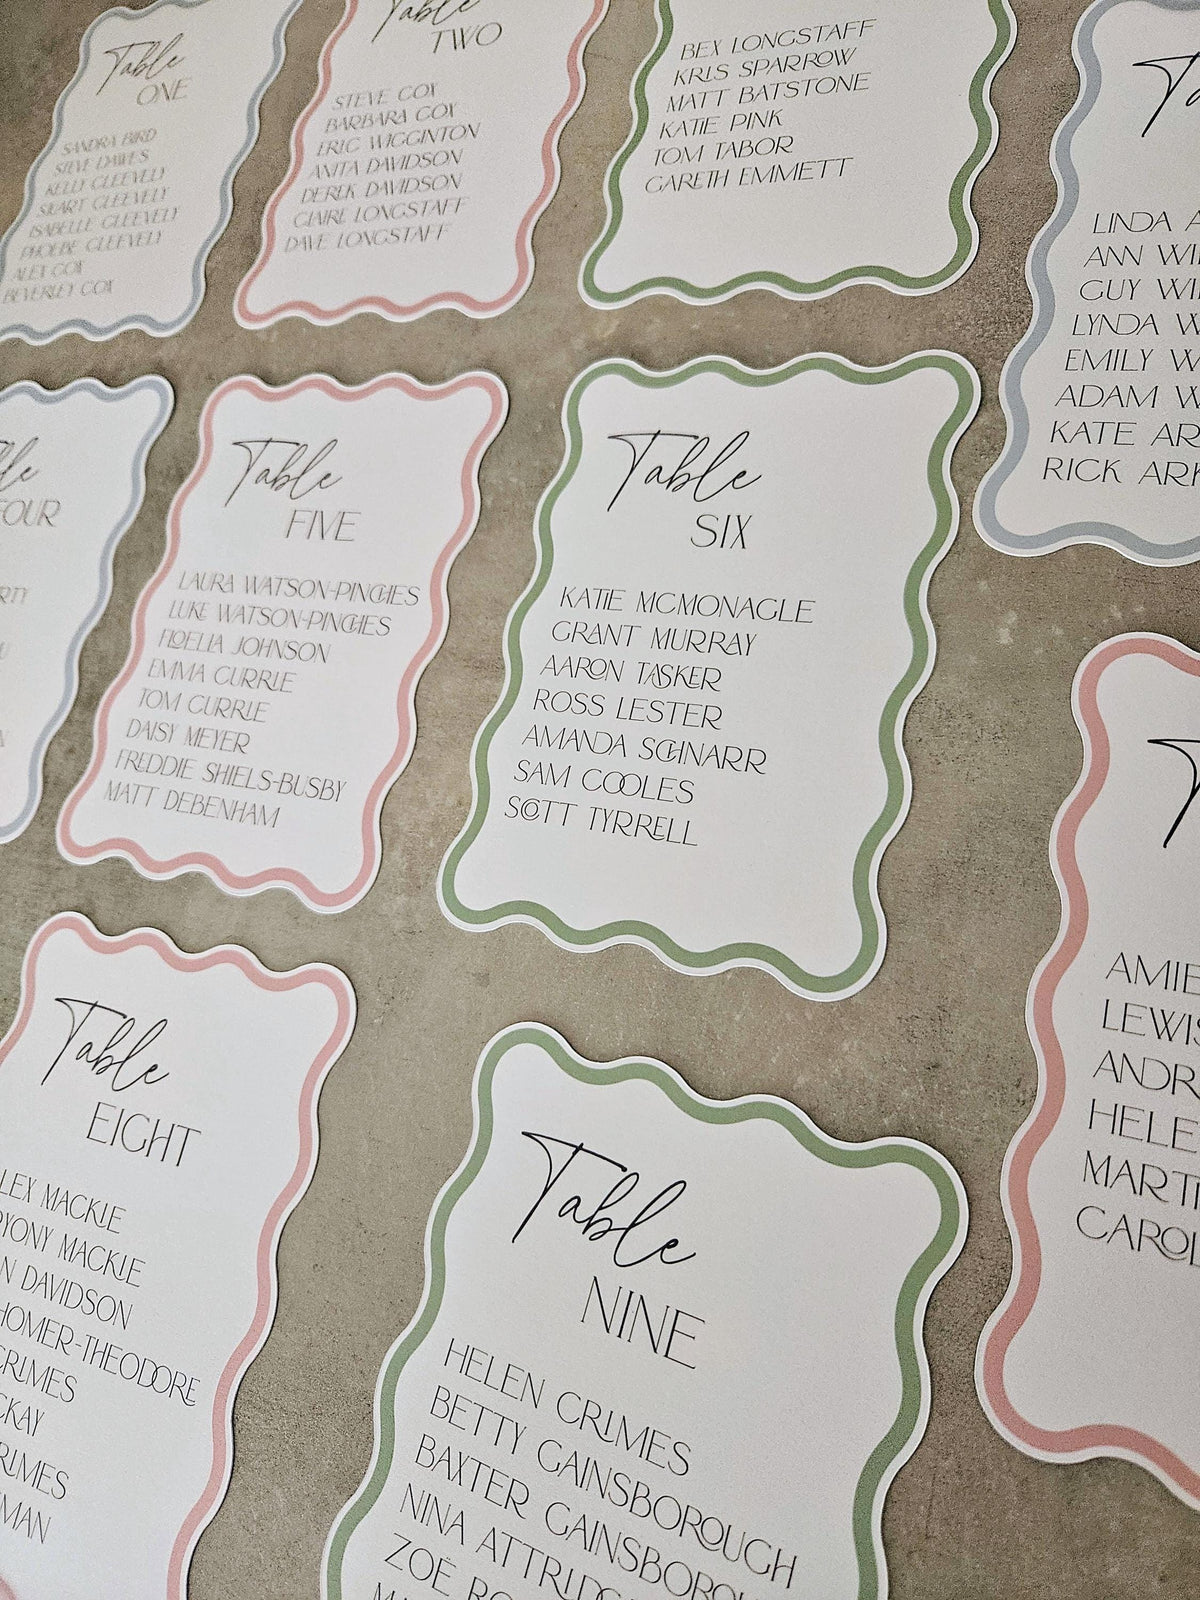 Table
ONE
SANDRA BIRD
STEVE DAWES
KELLY CLEEVELY
STUART CLEEVELY
ISABELLE CLEEVELY
PHOEBE CLEEVELY
ALEX COX
BEVERLEY COX
Table
TWO
STEVE COX
BARBARA COX
ERIC WIGGINTON
ANITA DAVIDSON
DEREK DAVIDSON
CLAIRE LONGSTAFF
DAVE LONGSTAFF
BEX LONGSTAFF
KRIS SPARROW
MATT BATSTONE
KATIE PINK
TOM TABOR
GARETH EMMETT
LINDA
ANN
GUY
LYNDA
EMILY
ADAM
KATE
RICK
FOUR
Table
FIVE
LAURA WATSON-PINCHES
LUKE WATSON-PINCHES
FLOELIA JOHNSON
EMMA CURRIE
TOM CURRIE
DAISY MEYER
FREDDIE SHIELS-BUSBY
MATT DEBENHAM
Table
SIX
KATIE MCMONAGLE
GRANT MURRAY
AARON TASKER
ROSS LESTER
AMANDA SCHNARR
SAM COOLES
SCOTT TYRRELL
Table
EIGHT
LEX MACKIE
RYONY MACKIE
N DAVIDSON
HOMER-THEODORE
CRIMES
CKAY
RIMES
MAN
Table
NINE
HELEN CRIMES
BETTY GAINSBOROUGH
BAXTER GAINSBOROU
NINA ATTRIDG
ZOË RO
AMIE
LEWIS
ANDR
HELE
MARTI
CAROL